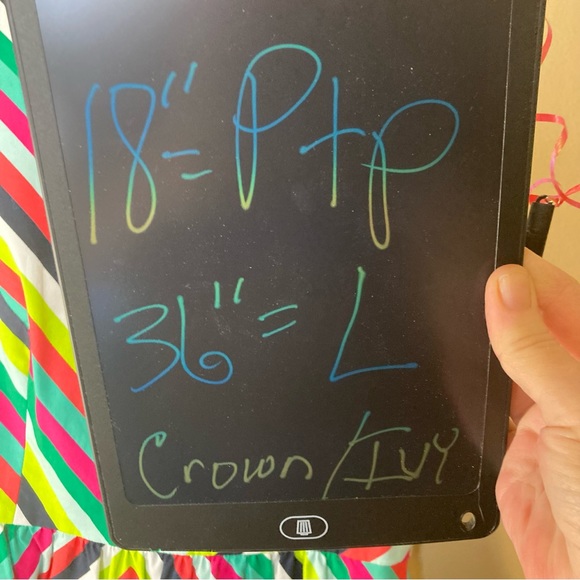 18" = P+P
36" = L
Crown/IVY